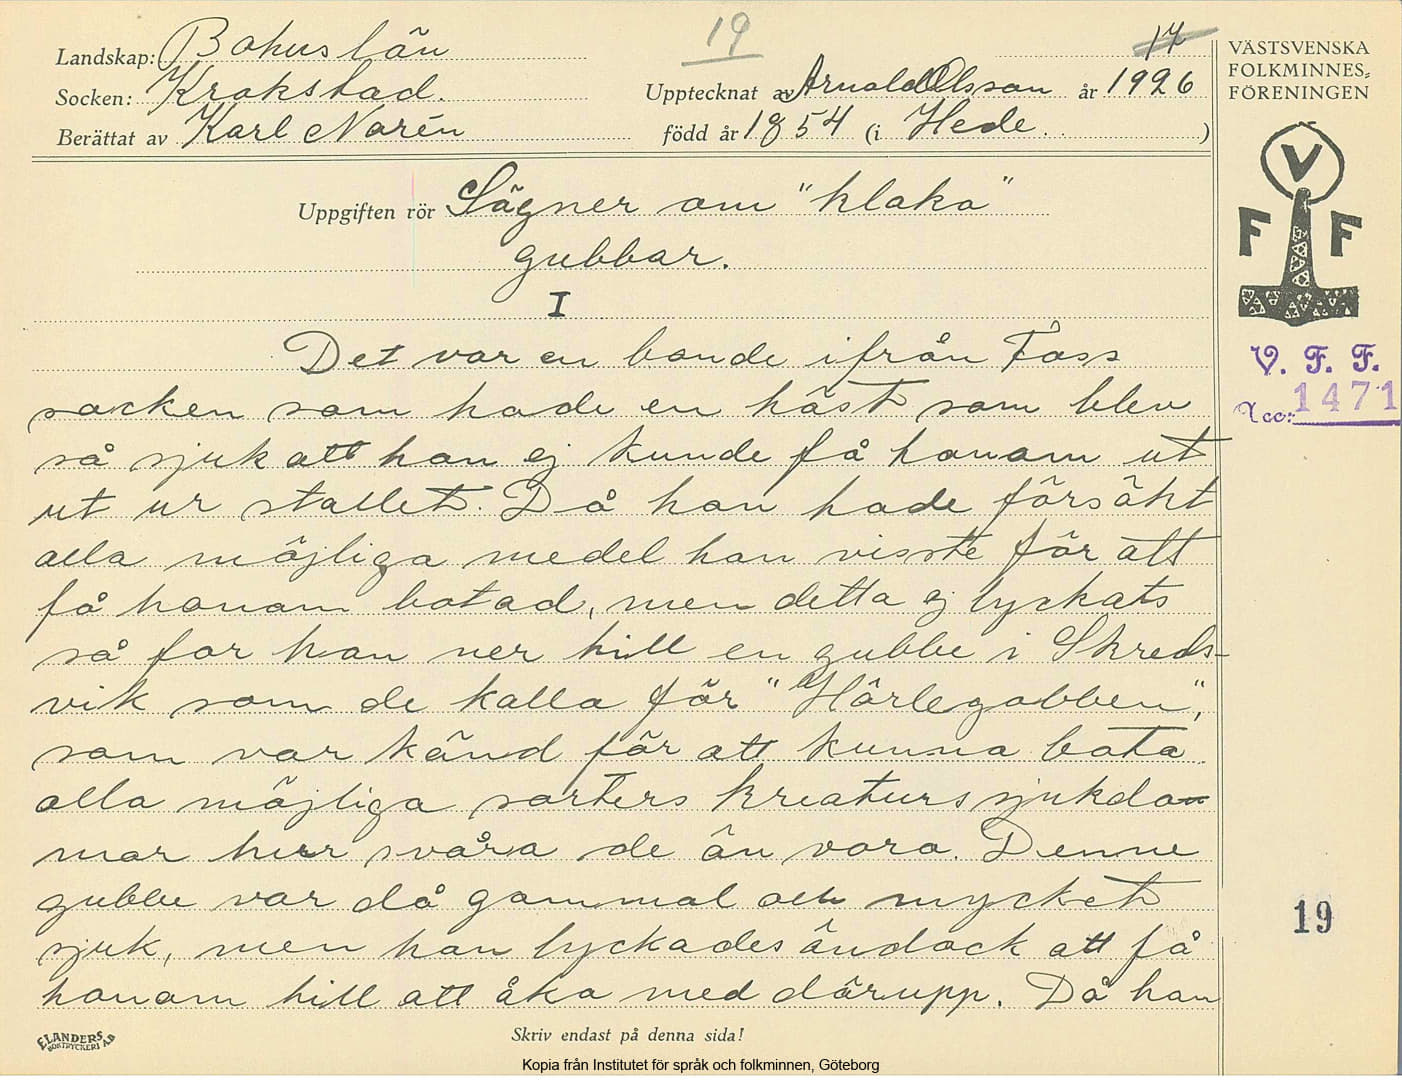 19
14
Landskap: Bohuslän
Socken: Krokstad.
Upptecknat av Arnold Olsson år 1926
Berättat av Karl Norén
född år 1854 (i Hede. )
VÄSTSVENSKA
FOLKMINNES-
FÖRENINGEN
V
F F
V. F. F.
Acc: 1471
Uppgiften rör Sägner om "kloka"
gubbar.
I
Det var en bonde ifrån Foss
socken som hade en häst som blev
så sjuk att han ej kunde få honom ut
ut ur stallet. Då han hade försökt
alla möjliga medel han visste för att
få honom botad, men detta ej lyckats
så for han ner till en gubbe i Skreds-
vik som de kalla för "Härlegobben",
som var känd för att kunna bota
alla möjliga sorters kreaturssjukdo-
mar hur svåra de än voro. Denne
gubbe var då gammal och mycket
sjuk, men han lyckades ändock att få
honom till att åka med därupp. Då han
19
ELANDERS
BOKTRYCKERI AB
Skriv endast på denna sida!
Kopia från Institutet för språk och folkminnen, Göteborg